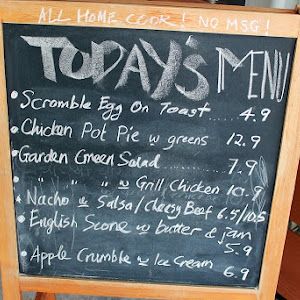 ALL HOME COOK! NO MSG!
TODAY'S MENU
• Scromble Egg On Toast ..... 4.9
• Chicken Pot Pie w greens 12.9
• Garden Green Salad ........ 7.9
• " " " w Grill Chicken 10.9
• Nacho w Salsa/Cheesy Beef 6.5/10.5
• English Scone w butter & jam
5.9
• Apple Crumble w Ice Cream
6.9